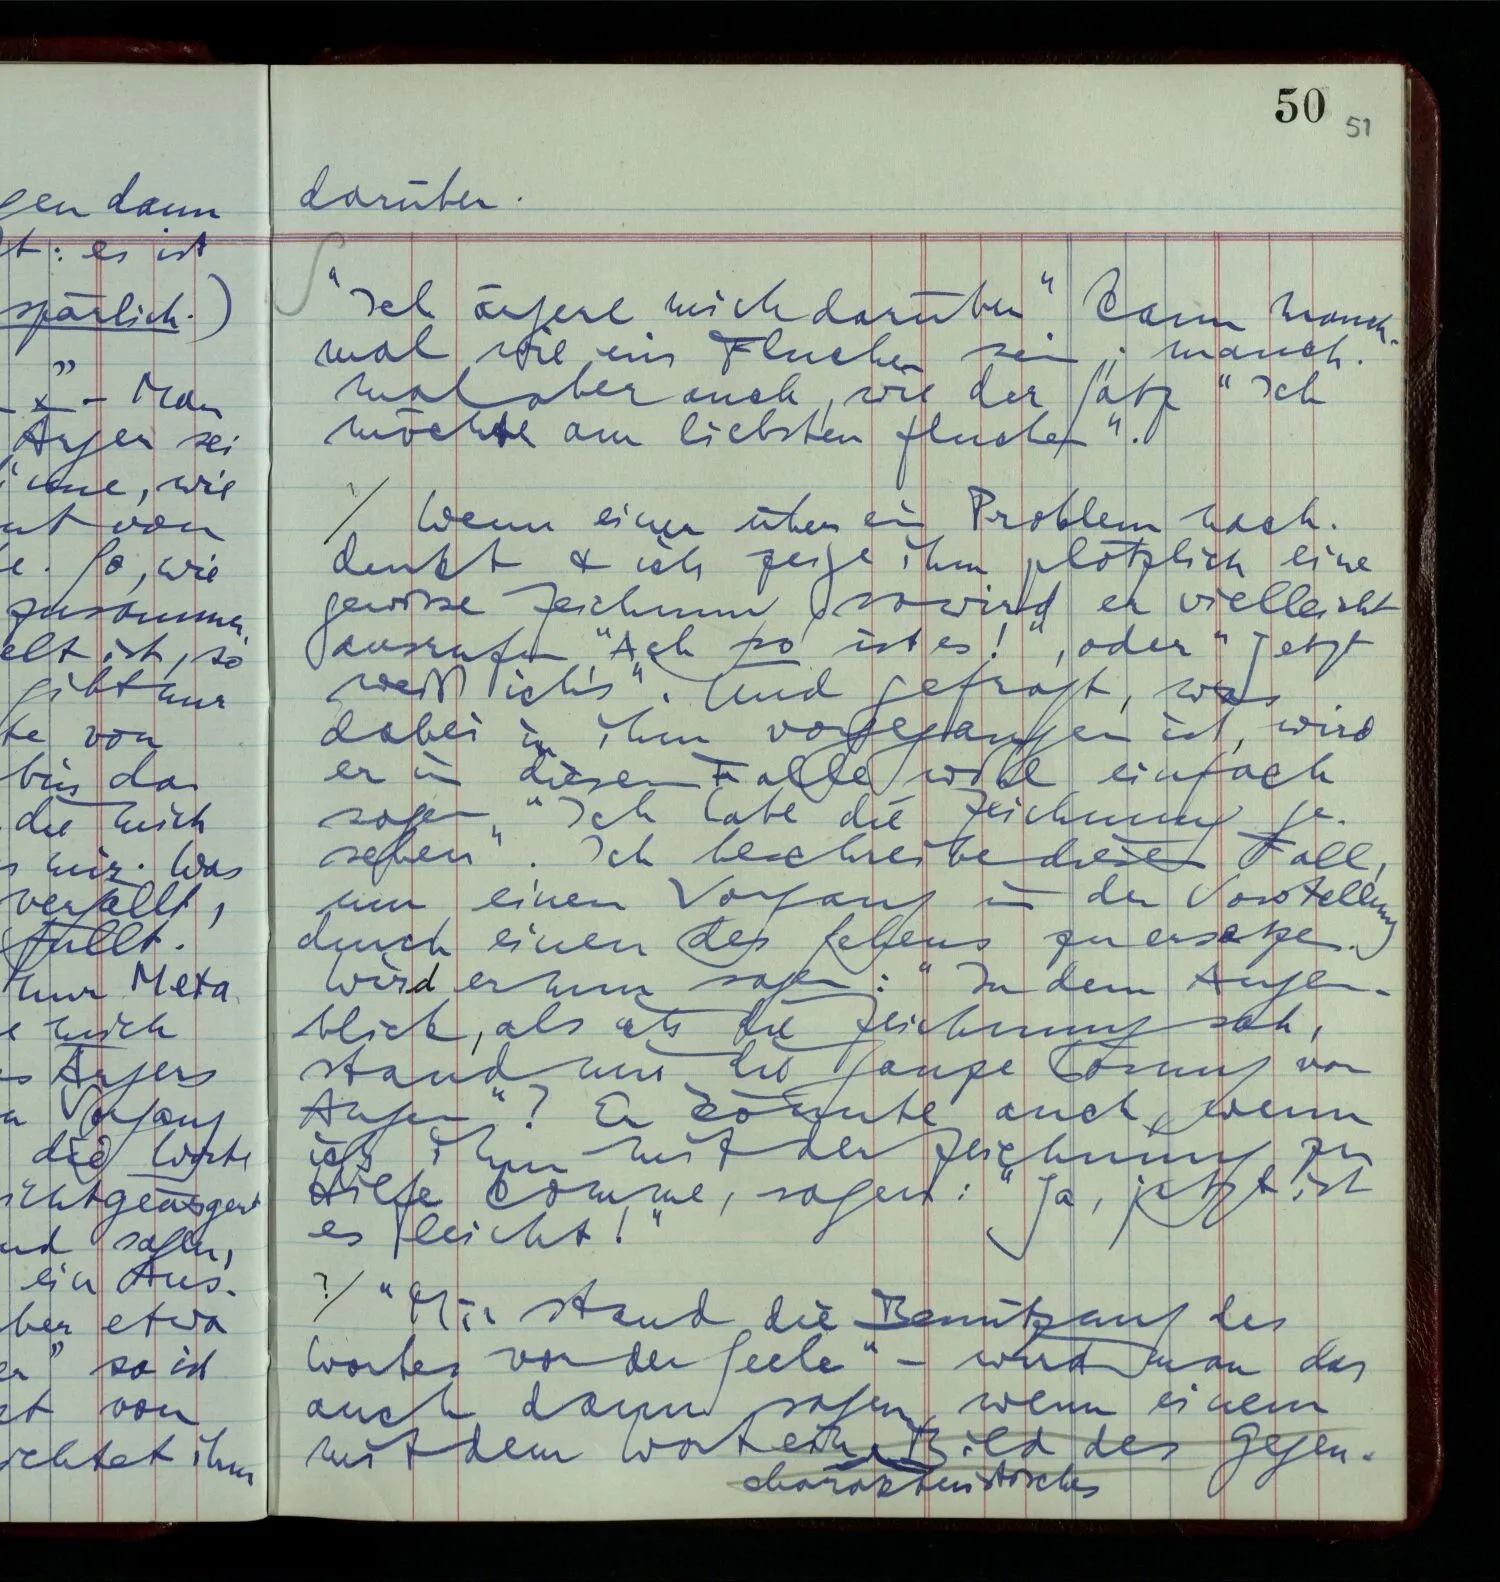 50 51
gen dann
t: es ist
spärlich.)
" – Man
Ärger sei
wie
von
So, wie
zusammen
elt ist, so
gibt nur
te von
bin da
die mich
mir. Was
verfällt,
füllt.
nur Meta
mich
Ärgers
Vorgang
die Worte
icht geärgert
nd sagen,
ein Aus-
ber etwa
er" so ist
von
ichtet ihm
darüber.
"Ich ärgere mich darüber" kann manch-
mal wie ein Fluchen sein; manch-
mal aber auch, wie der Satz "Ich
möchte am liebsten fluchen".
?/ Wenn einer über ein Problem nach-
denkt & ich zeige ihm plötzlich eine
gewisse Zeichnung so wird er vielleicht
ausrufen "Ach so ist es!", oder "Jetzt
weiß ich's". Und gefragt, was
dabei in ihm vorgegangen ist, wird
er in diesem Falle wohl einfach
sagen "Ich habe die Zeichnung ge-
sehen". Ich beschreibe diesen Fall,
um einen Vorgang in der Vorstellung
durch einen des Sehens zu ersetzen.
Wird er nun sagen: "In dem Augen-
blick, als ich die Zeichnung sah,
stand mir die ganze Lösung vor
Augen"? Er könnte auch, wenn
ich ihm mit der Zeichnung zu
Hilfe komme, sagen: "Ja, jetzt ist
es leicht!"
?/ "Mir stand die Benützung des
Wortes vor der Seele" – wird man das
auch dann sagen, wenn einem
mit dem Wort ein Bild des Gegen-
charakteristisches